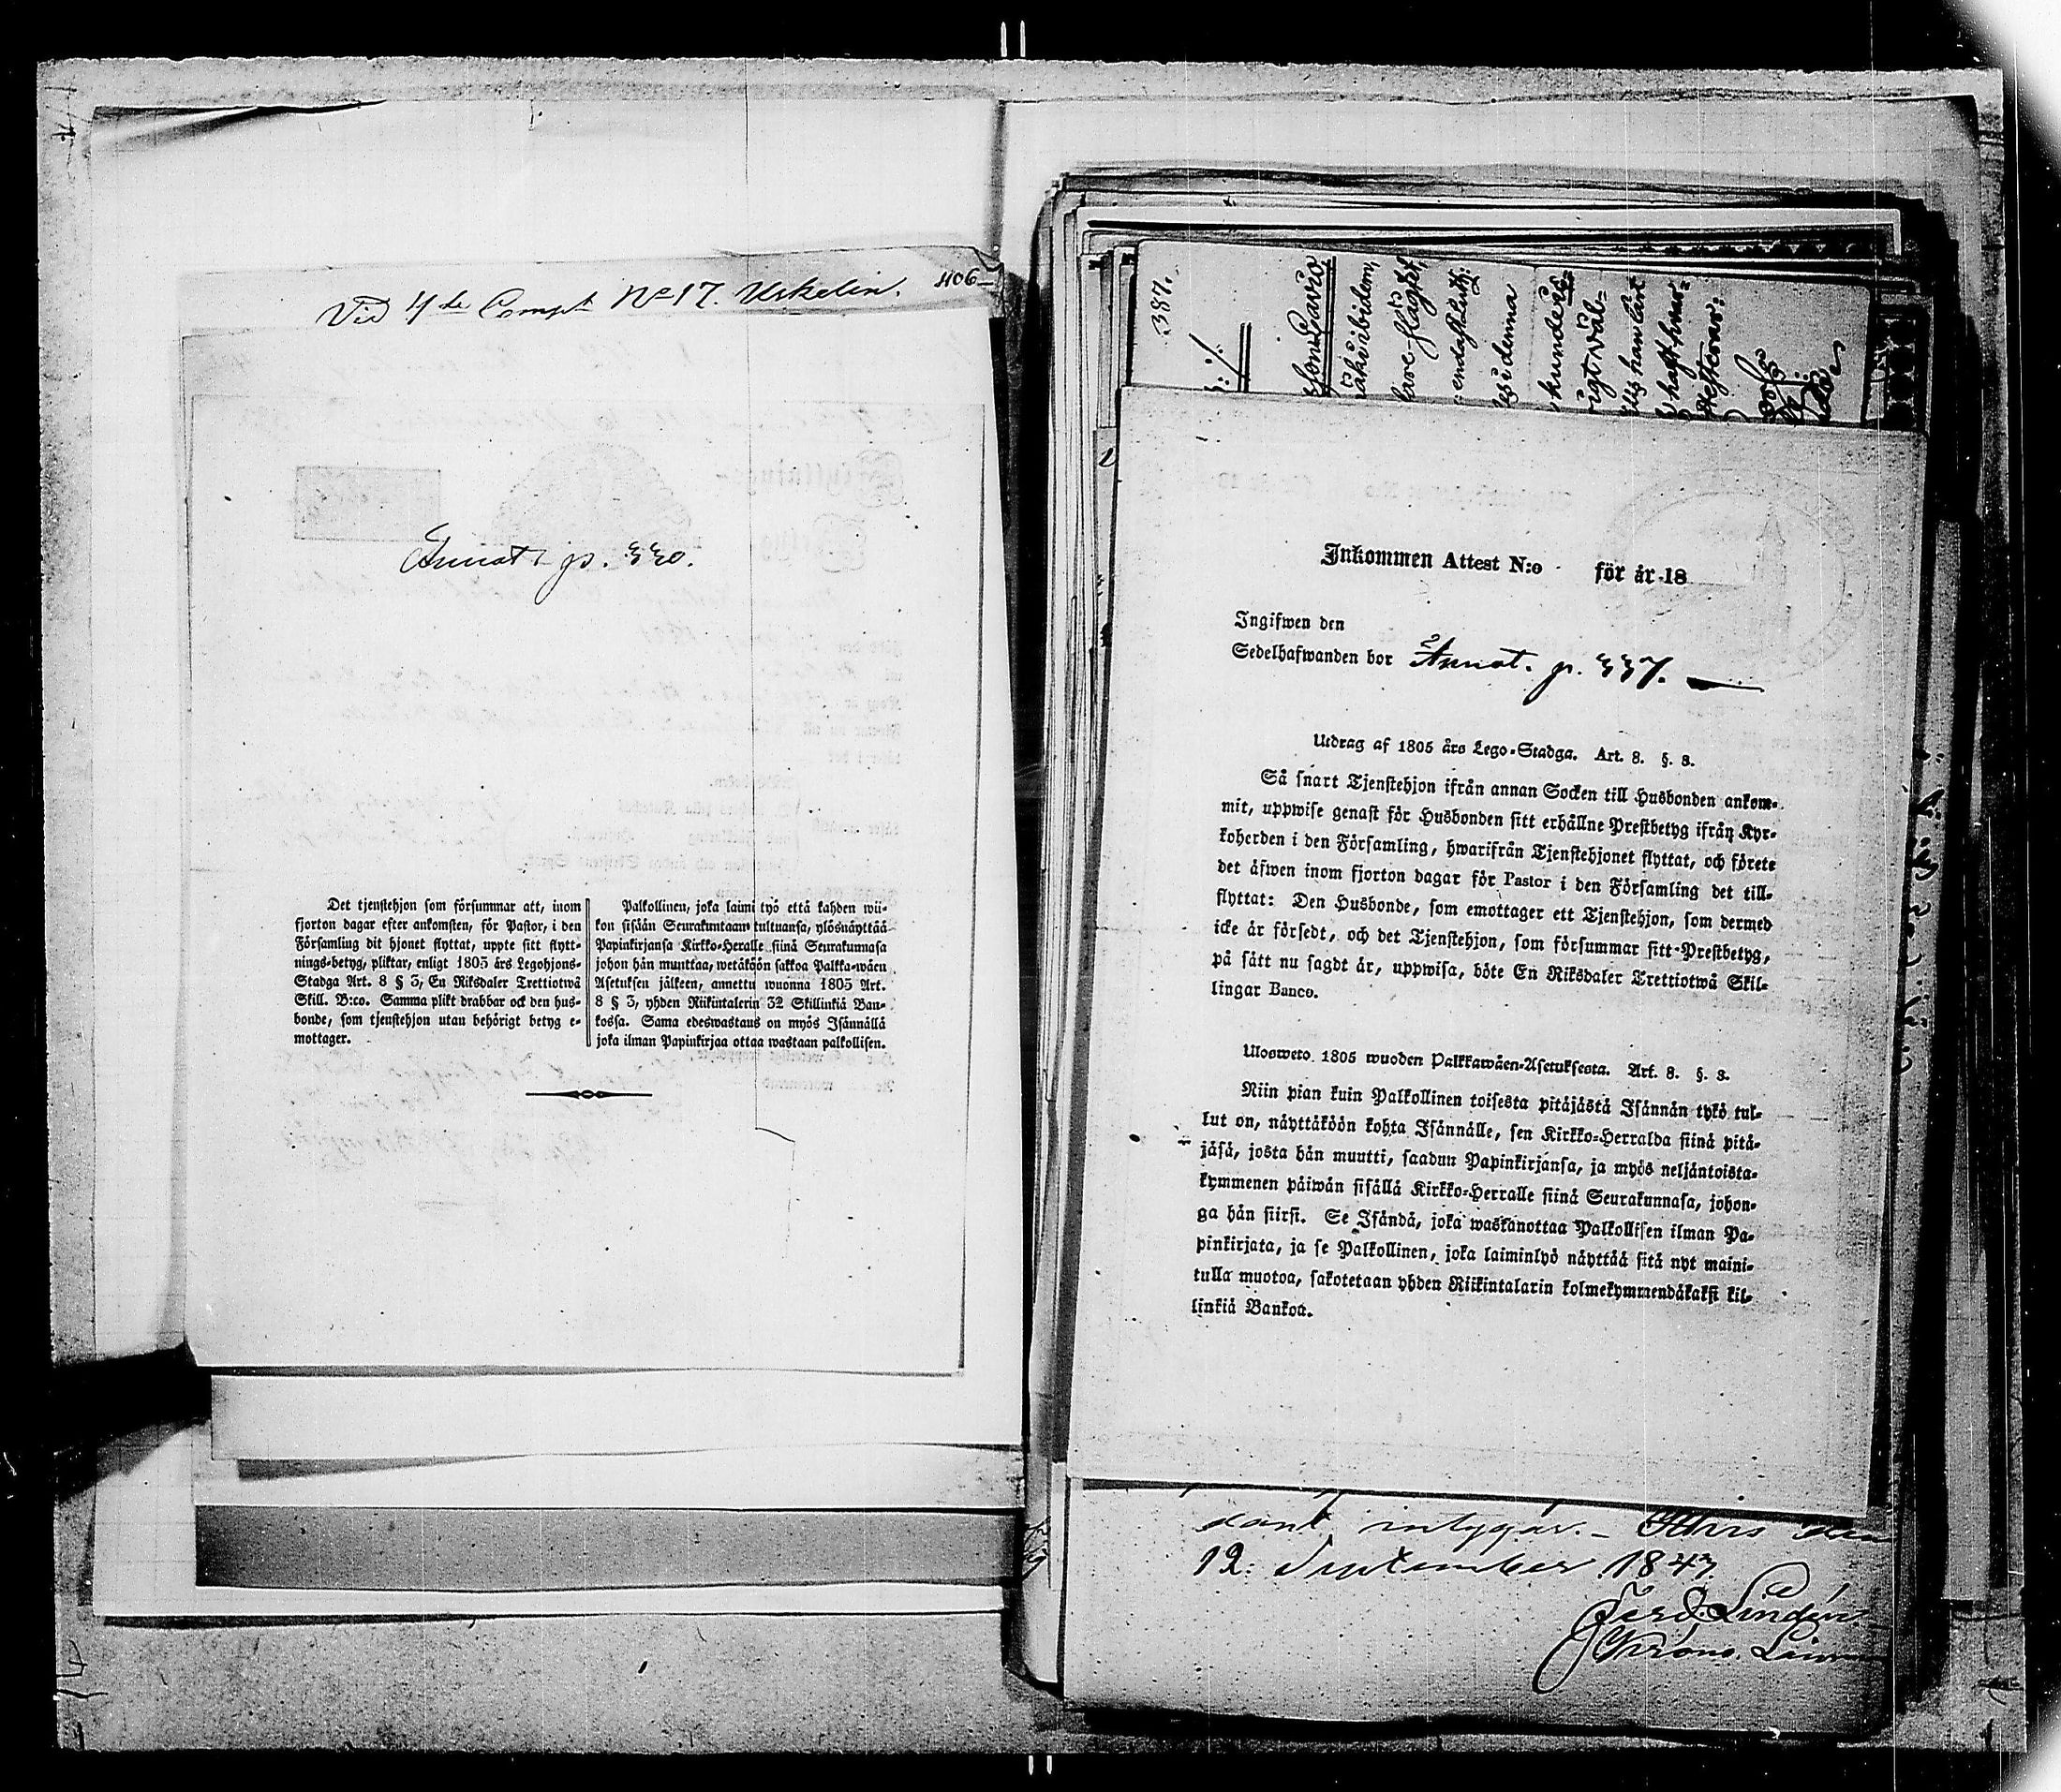 Vid 4de Compt No 17. Uskelin. 406
Annot. p. 330.
Det tjenstehjon som försummar att, inom
fjorton dagar efter ankomsten, för Pastor, i den
Församling dit hjonet flyttat, uppte sitt flytt-
nings-betyg, pliktar, enligt 1805 års Legohjons-
Stadga Art. 8 § 3, En Riksdaler Trettiotwå
Skill. B:co. Samma plikt drabbar ock den hus-
bonde, som tjenstehjon utan behörigt betyg e-
mottager.
Palkollinen, joka laimi tyó että kahden wii-
kon sisään Seurakuntaan tultuansa, ylösnäyttää
Papinkirjansa Kirkko-Heralle siinä Seurakunnasa
johon hän muuttaa, wetäköön sakkoa Palkka-wäen
Asetuksen jälkeen, annettu wuonna 1805 Art.
8 § 3, yhden Riikintalerin 32 Skillinkiä Ban-
kossa. Sama edeswastaus on myös Isännällä
joka ilman Papinkirjaa ottaa wastaan palkollisen.
387.
ibidem,
i denna
Inkommen Attest N:o för år 18
Ingifwen den
Sedelhafwanden bor Annot. p. 337.
Utdrag af 1805 års Lego-Stadga. Art. 8. §. 3.
Så snart Tjenstehjon ifrån annan Socken till Husbonden ankom-
mit, uppwise genast för Husbonden sitt erhållne Prestbetyg ifrån Kyr-
koherden i den Församling, hwarifrån Tjenstehjonet flyttat, och förete
det äfwen inom fjorton dagar för Pastor i den Församling det till-
flyttat: Den Husbonde, som emottager ett Tjenstehjon, som dermed
icke är försedt, och det Tjenstehjon, som försummar sitt Prestbetyg,
på sätt nu sagdt är, uppwisa, böte En Riksdaler Trettiotwå Skil-
lingar Banco.
Ulosweto 1805 wuoden Palkkawäen-Asetuksesta. Art. 8. §. 3.
Niin pian kuin Palkollinen toisesta pitäjästä Isännän tykö tul-
lut on, näyttäköön kohta Isännälle, sen Kirkko-Herralda siinä pitä-
jäsä, josta hän muutti, saadun Papinkirjansa, ja myös neljäntoista-
kymmenen päiwän sisällä Kirkko-Herralle siinä Seurakunnasa, johon-
ga hän siirsi. Se Isändä, joka waskanottaa Palkollisen ilman Pa-
pinkirjata, ja se Palkollinen, joka laiminlyö näyttää sitä nyt maini-
tulla muotoa, sakotetaan yhden Riikintalarin kolmekymmendäkaksi kil-
linkiä Bankoa.
intygar.
12. September 1847.
Ferd. Lindén